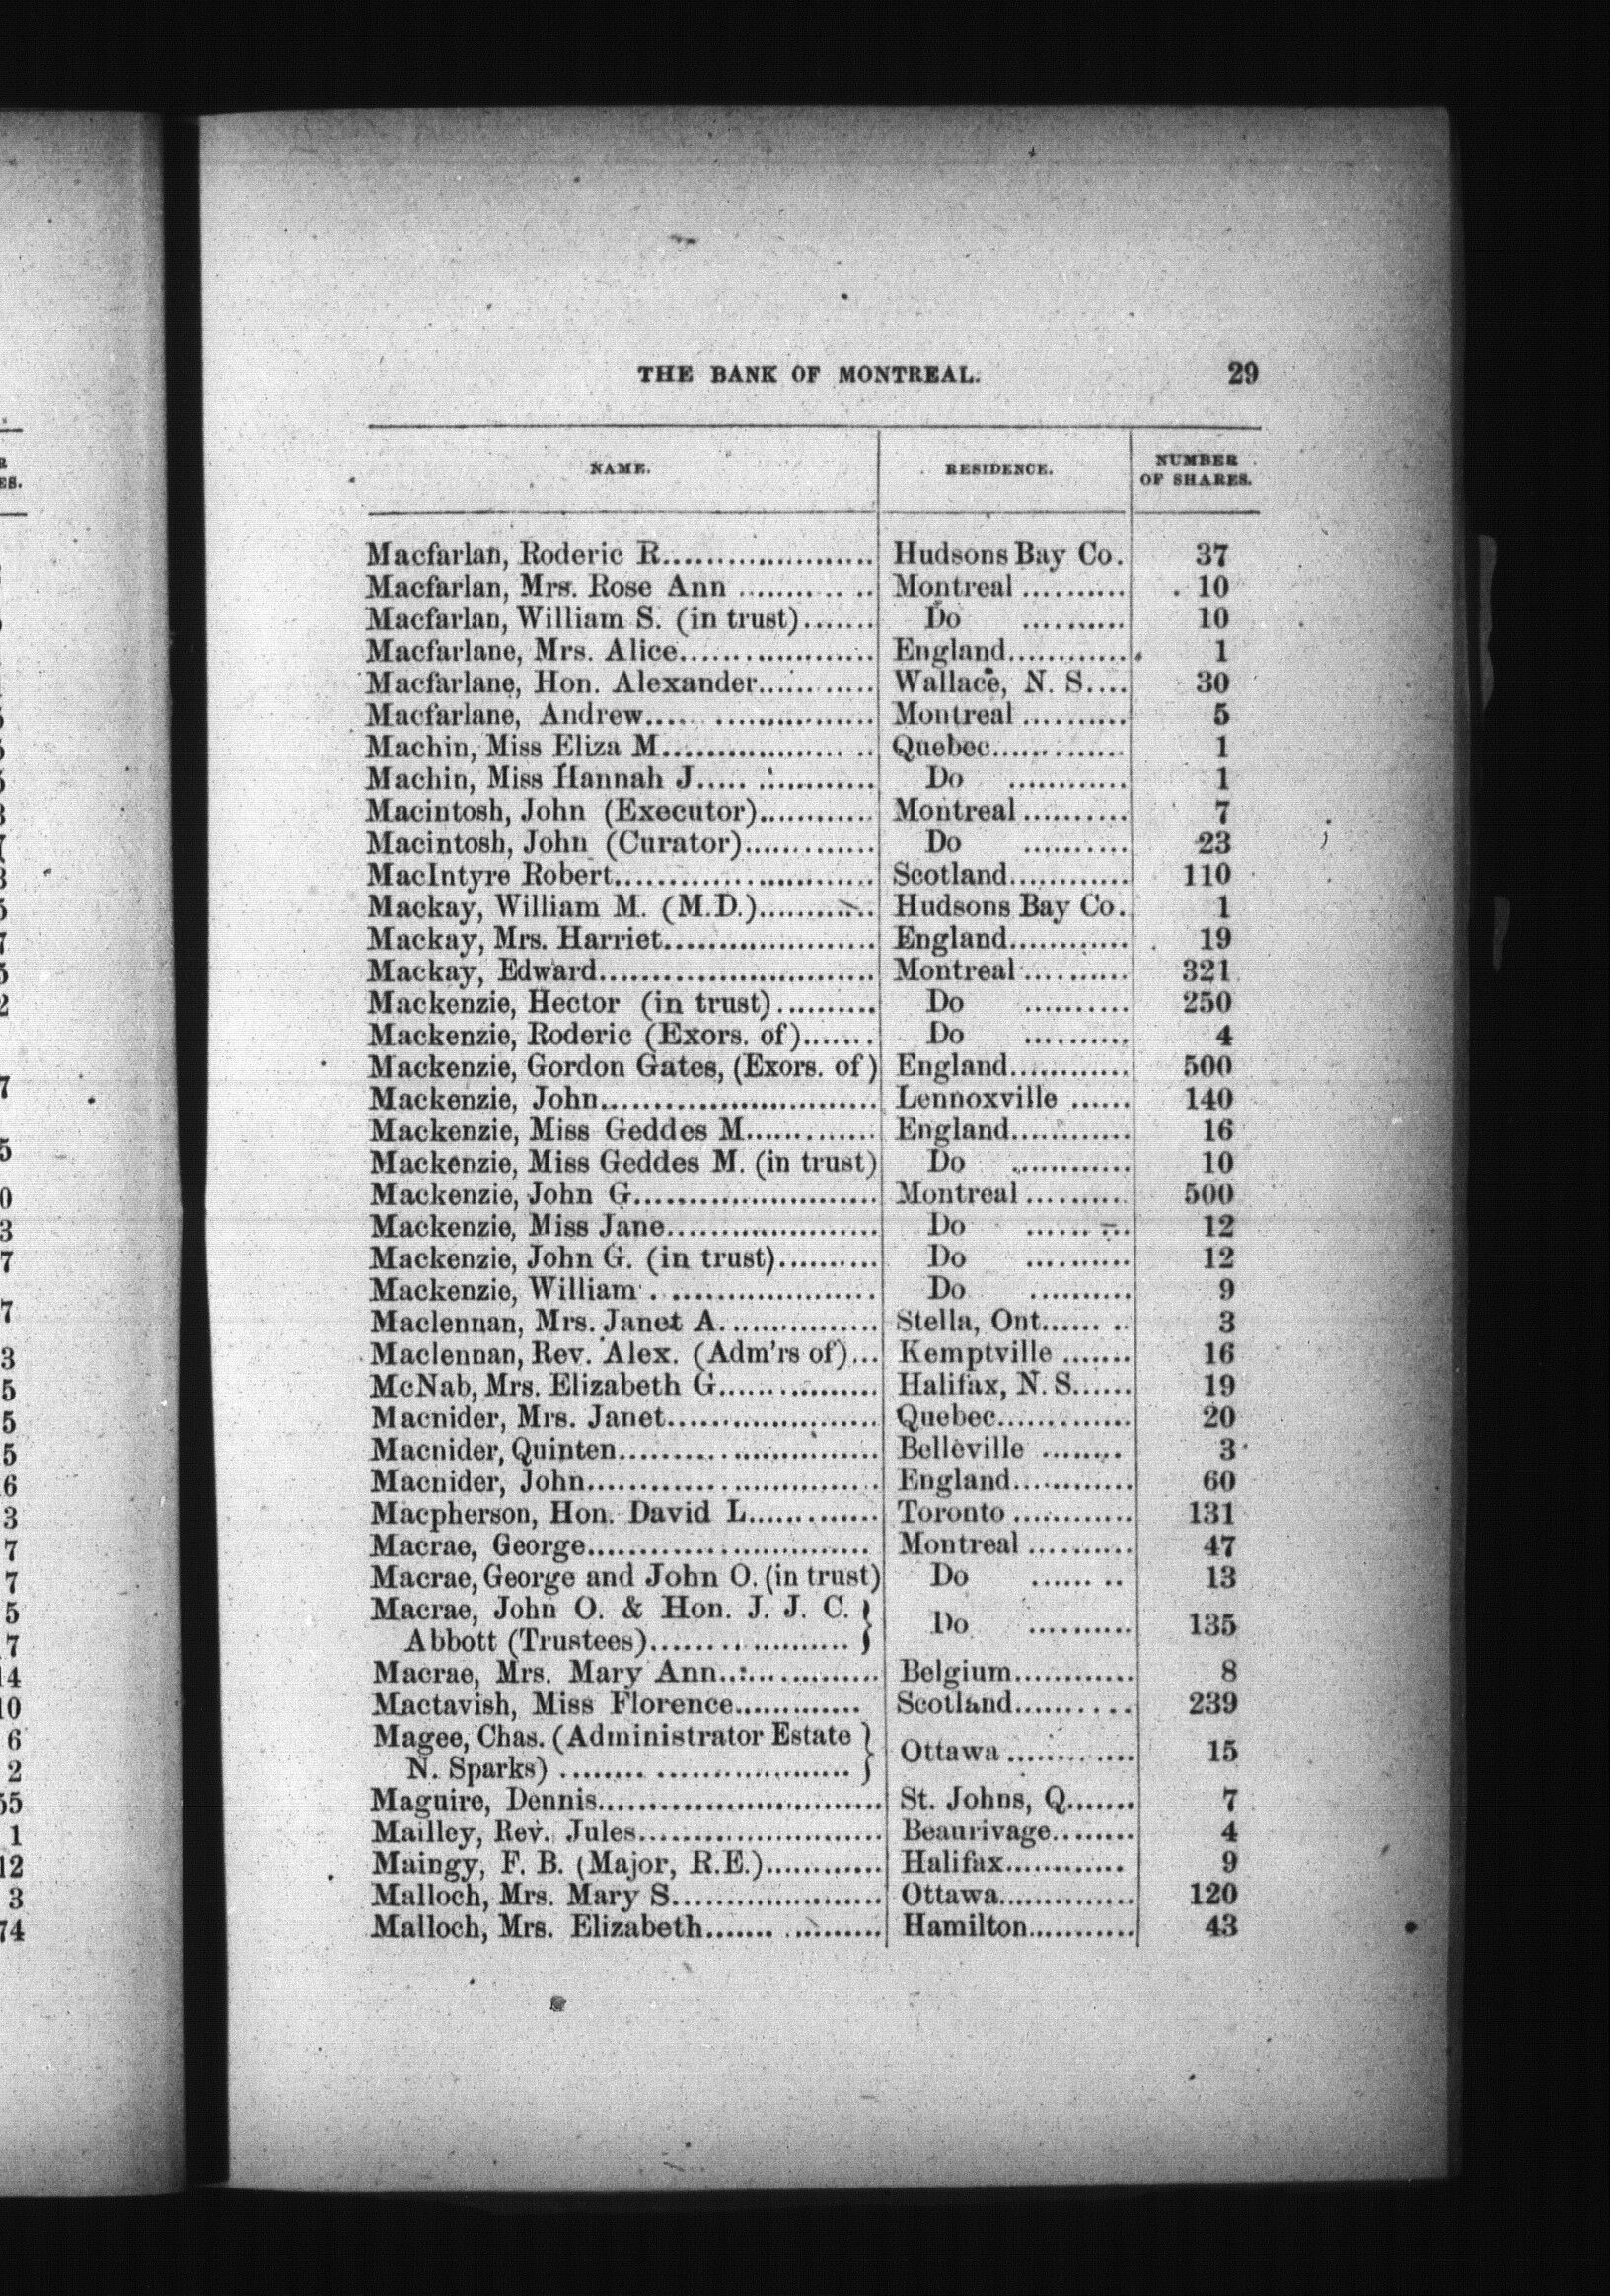 THE BANK OF MONTREAL. 29
NAME. RESIDENCE. NUMBER OF SHARES.
Macfarlan, Roderic R..................... Hudsons Bay Co. 37
Macfarlan, Mrs. Rose Ann ............. Montreal .......... 10
Macfarlan, William S. (in trust)....... Do .......... 10
Macfarlane, Mrs. Alice................... England............ 1
Macfarlane, Hon. Alexander............ Wallace, N. S.... 30
Macfarlane, Andrew.... ................ Montreal .......... 5
Machin, Miss Eliza M.................... Quebec............. 1
Machin, Miss Hannah J................. Do ............ 1
Macintosh, John (Executor)........... Montreal .......... 7
Macintosh, John (Curator)............. Do .......... 23
MacIntyre Robert......................... Scotland............ 110
Mackay, William M. (M.D.)........... Hudsons Bay Co. 1
Mackay, Mrs. Harriet.................... England............ 19
Mackay, Edward.......................... Montreal .......... 321
Mackenzie, Hector (in trust).......... Do .......... 250
Mackenzie, Roderic (Exors. of)....... Do .......... 4
Mackenzie, Gordon Gates, (Exors. of) England............ 500
Mackenzie, John.......................... Lennoxville ...... 140
Mackenzie, Miss Geddes M............. England............ 16
Mackenzie, Miss Geddes M. (in trust) Do ............ 10
Mackenzie, John G....................... Montreal .......... 500
Mackenzie, Miss Jane.................... Do .......... 12
Mackenzie, John G. (in trust).......... Do .......... 12
Mackenzie, William ..................... Do .......... 9
Maclennan, Mrs. Janet A................ Stella, Ont...... .. 3
Maclennan, Rev. Alex. (Adm'rs of)... Kemptville ....... 16
McNab, Mrs. Elizabeth G............... Halifax, N. S...... 19
Macnider, Mrs. Janet..................... Quebec............. 20
Macnider, Quinten........................ Belleville ........ 3
Macnider, John............................ England............ 60
Macpherson, Hon. David L............. Toronto ............ 131
Macrae, George........................... Montreal .......... 47
Macrae, George and John O. (in trust) Do ...... .. 13
Macrae, John O. & Hon. J. J. C. }
Abbott (Trustees)................... } Do .......... 135
Macrae, Mrs. Mary Ann..:............. Belgium............ 8
Mactavish, Miss Florence............. Scotland.......... 239
Magee, Chas. (Administrator Estate }
N. Sparks) ........ ................... } Ottawa ............ 15
Maguire, Dennis........................... St. Johns, Q....... 7
Mailley, Rev. Jules....................... Beaurivage........ 4
Maingy, F. B. (Major, R.E.)............ Halifax............ 9
Malloch, Mrs. Mary S.................... Ottawa............. 120
Malloch, Mrs. Elizabeth....... .......... Hamilton........... 43